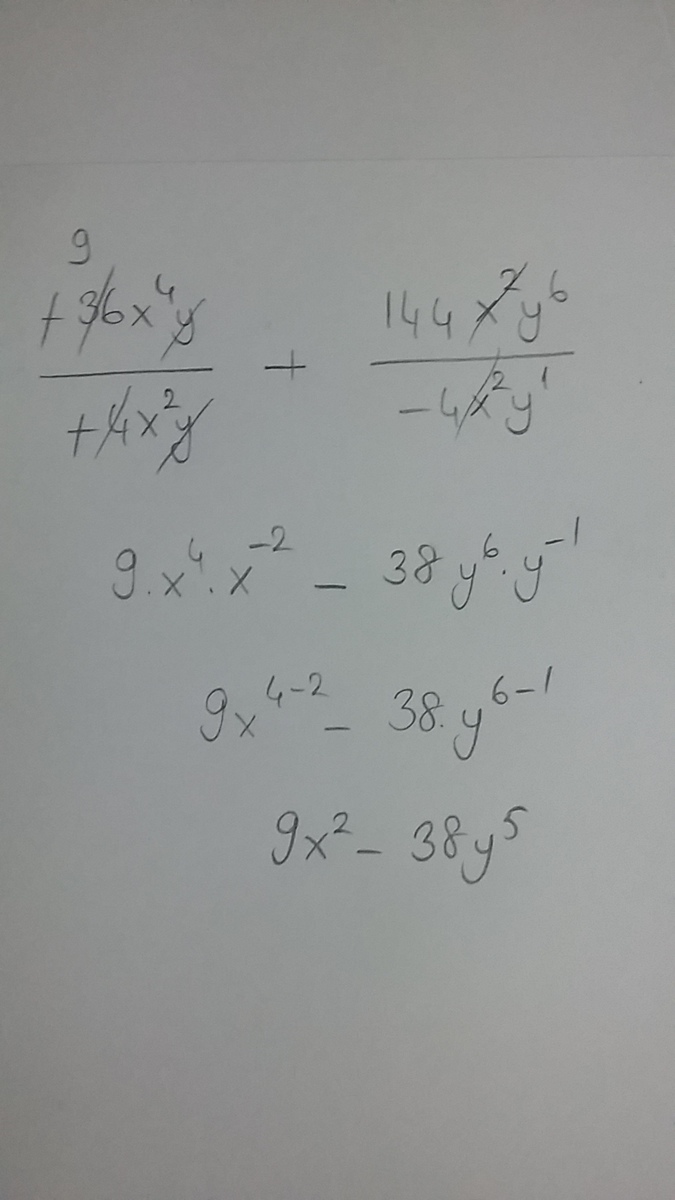 9
+36x⁴y + 144x²y⁶
+4x²y   -4x²y¹
9.x⁴.x⁻² - 38y⁶.y⁻¹
9x⁴⁻² - 38.y⁶⁻¹
9x² - 38y⁵